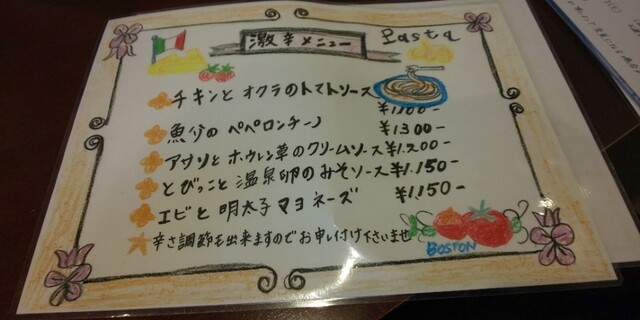 激辛メニュー
Pasta
チキンとオクラのトマトソース
¥1,100-
魚介のペペロンチーノ ¥1,300-
アサリとホウレン草のクリームソース ¥1,200-
とびっこと温泉卵のみそソース ¥1,150-
エビと明太子マヨネーズ ¥1,150-
辛さ調節も出来ますのでお申し付け下さいませ
BOSTON